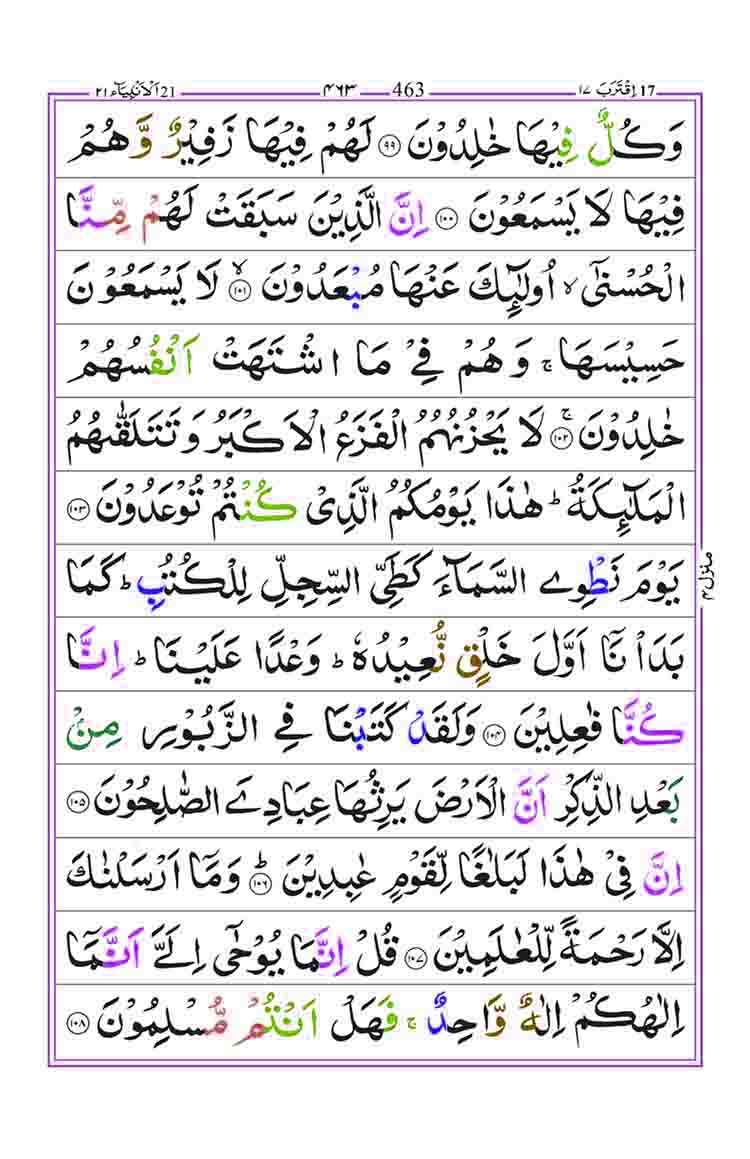 ٢١ اَلْاَنْبِيَآء 21 ۴۶۳ 463 ١٧ اِقْتَرَبَ 17
وَكُلٌّ فِيْهَا خٰلِدُوْنَ ﴿٩٩﴾ لَهُمْ فِيْهَا زَفِيْرٌ وَّهُمْ
فِيْهَا لَا يَسْمَعُوْنَ ﴿١٠٠﴾ اِنَّ الَّذِيْنَ سَبَقَتْ لَهُمْ مِّنَّا
الْحُسْنٰٓى ۙ اُولٰٓئِكَ عَنْهَا مُبْعَدُوْنَ ﴿١٠١﴾ ۙ لَا يَسْمَعُوْنَ
حَسِيْسَهَا ۚ وَهُمْ فِيْ مَا اشْتَهَتْ اَنْفُسُهُمْ
خٰلِدُوْنَ ﴿١٠٢﴾ ۚ لَا يَحْزُنُهُمُ الْفَزَعُ الْاَكْبَرُ وَتَتَلَقّٰىهُمُ
الْمَلٰٓئِكَةُ ؕ هٰذَا يَوْمُكُمُ الَّذِيْ كُنْتُمْ تُوْعَدُوْنَ ﴿١٠٣﴾
يَوْمَ نَطْوِي السَّمَآءَ كَطَيِّ السِّجِلِّ لِلْكُتُبِ ؕ كَمَا
بَدَاْنَآ اَوَّلَ خَلْقٍ نُّعِيْدُهٗ ؕ وَعْدًا عَلَيْنَا ؕ اِنَّا
كُنَّا فٰعِلِيْنَ ﴿١٠٤﴾ وَلَقَدْ كَتَبْنَا فِي الزَّبُوْرِ مِنْۢ
بَعْدِ الذِّكْرِ اَنَّ الْاَرْضَ يَرِثُهَا عِبَادِيَ الصّٰلِحُوْنَ ﴿١٠٥﴾
اِنَّ فِيْ هٰذَا لَبَلٰغًا لِّقَوْمٍ عٰبِدِيْنَ ﴿١٠٦﴾ ؕ وَمَآ اَرْسَلْنٰكَ
اِلَّا رَحْمَةً لِّلْعٰلَمِيْنَ ﴿١٠٧﴾ قُلْ اِنَّمَا يُوْحٰٓى اِلَيَّ اَنَّمَآ
اِلٰهُكُمْ اِلٰهٌ وَّاحِدٌ ۚ فَهَلْ اَنْتُمْ مُّسْلِمُوْنَ ﴿١٠٨﴾
منزل ۴